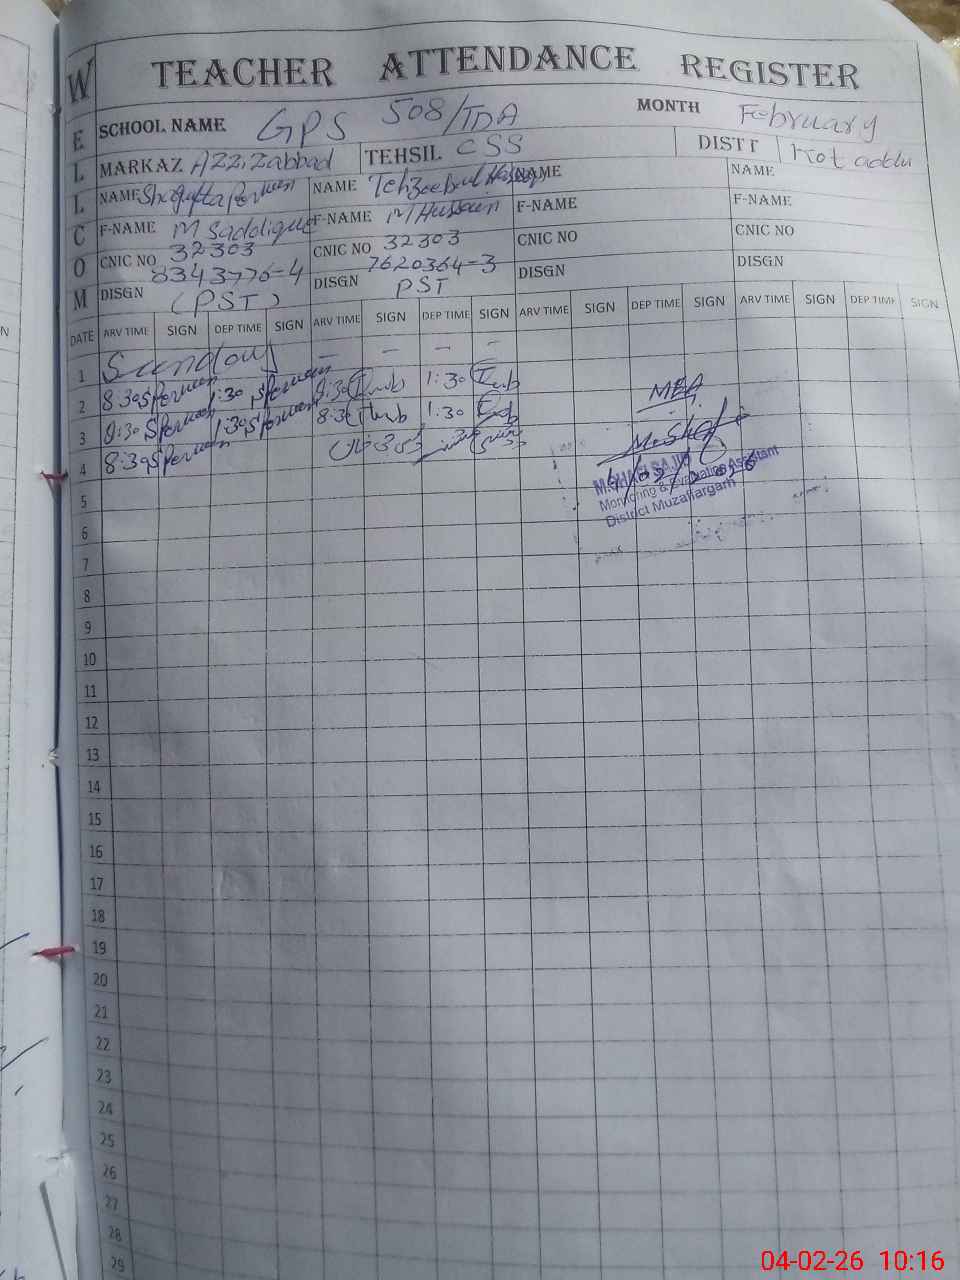 WELCOM
TEACHER ATTENDANCE REGISTER
SCHOOL NAME GPS 508/TDA MONTH February
MARKAZ AZZiZabbad TEHSIL CSS DISTT Kot addu
NAME Shagufta Perveen NAME NAME NAME
F-NAME M Saddique F-NAME M Hussain F-NAME F-NAME
CNIC NO 32303 CNIC NO 32303 CNIC NO CNIC NO
8343776-4 7620364-3
DISGN (PST) DISGN PST DISGN DISGN
DATE ARV TIME SIGN DEP TIME SIGN ARV TIME SIGN DEP TIME SIGN ARV TIME SIGN DEP TIME SIGN ARV TIME SIGN DEP TIME SIGN
1 Sunday - - - -
2 8:30 Sperveen 1:30 Sperveen 8:30 1:30
3 8:30 Sperveen 1:30 Sperveen 8:30 1:30
4 8:30 Sperveen
MEA
M.Shafi
M.SHAFI SAJID
Monitoring & Evaluating Assistant
District Muzaffargarh
5
6
7
8
9
10
11
12
13
14
15
16
17
18
19
20
21
22
23
24
25
26
27
28
29
04-02-26 10:16